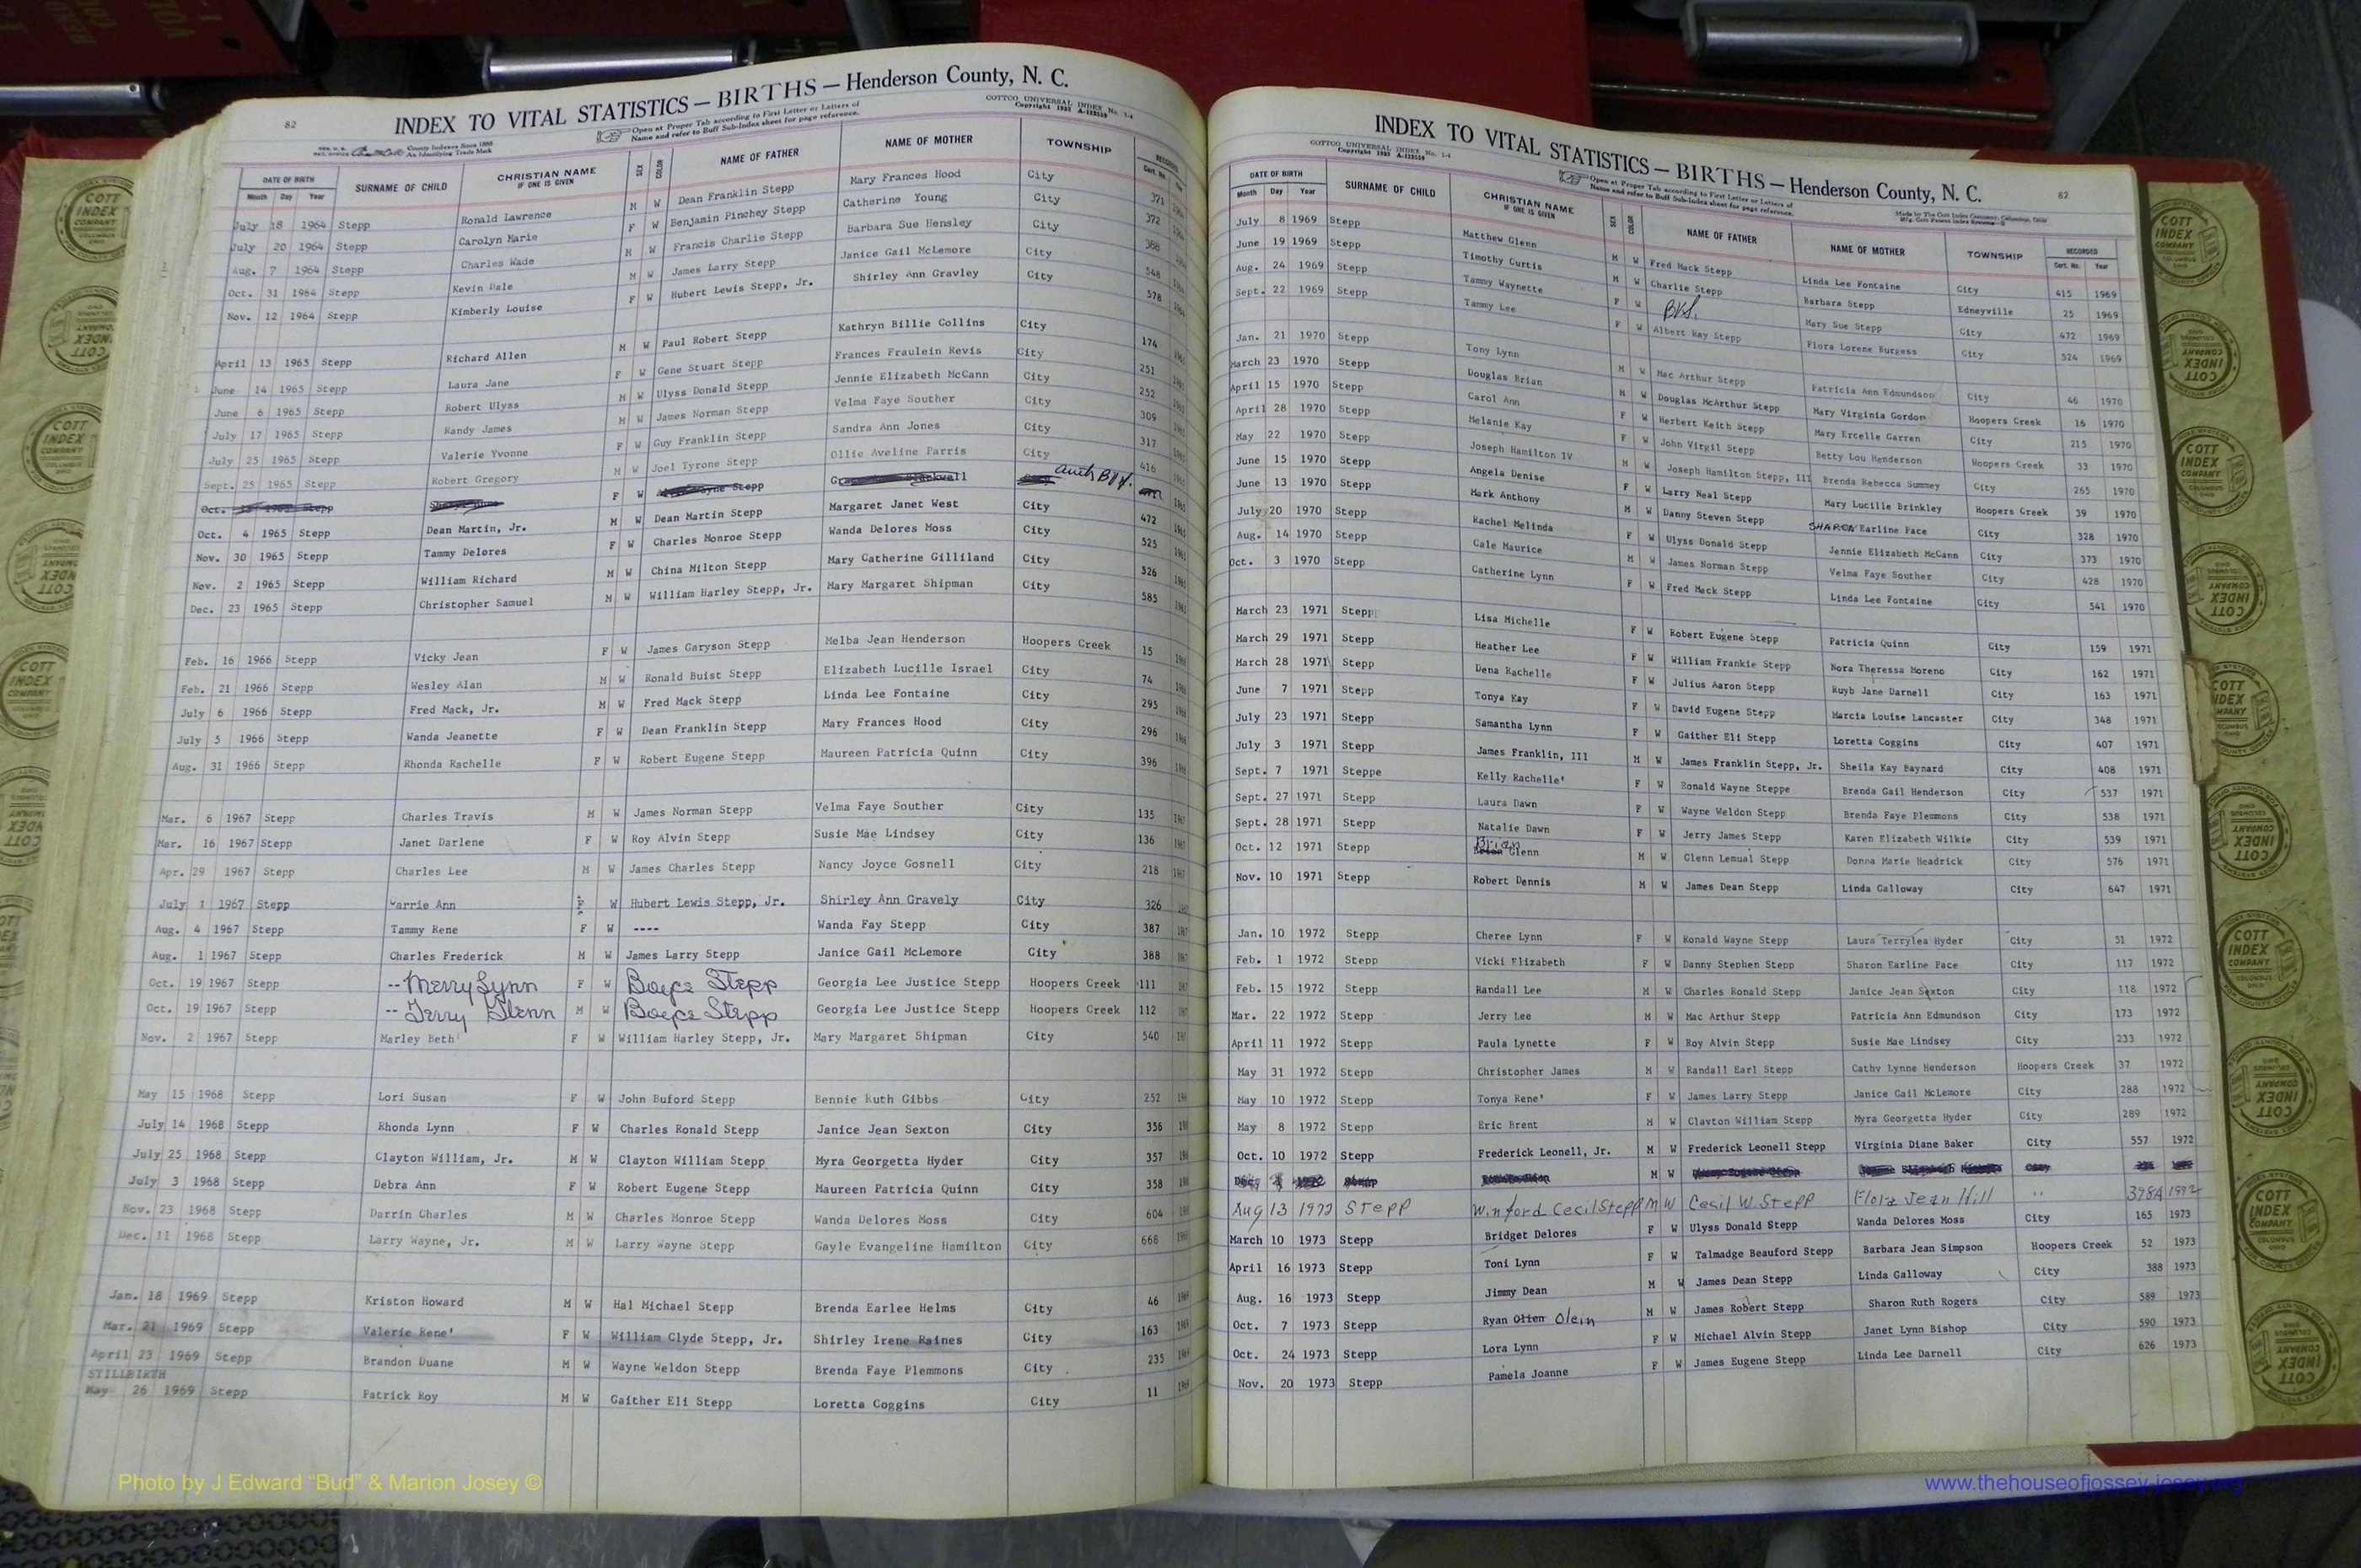 82
INDEX TO VITAL STATISTICS — BIRTHS — Henderson County, N. C.
COTTCO UNIVERSAL INDEX No. 1-4
Copyright 1935 A-122559
Open at Proper Tab according to First Letter or Letters of
Name and refer to Buff Sub-Index sheet for page reference.
County Indexes Since 1888
An Identifying Trade Mark
DATE OF BIRTH SURNAME OF CHILD CHRISTIAN NAME IF ONE IS GIVEN SEX COLOR NAME OF FATHER NAME OF MOTHER TOWNSHIP RECORDED
Month Day Year Cert. No. Year
July 18 1964 Stepp Ronald Lawrence M W Dean Franklin Stepp Mary Frances Hood City 371
July 20 1964 Stepp Carolyn Marie F W Benjamin Pinchey Stepp Catherine Young City 372
Aug. 7 1964 Stepp Charles Wade M W Francis Charlie Stepp Barbara Sue Hensley City 388
Oct. 31 1964 Stepp Kevin Dale M W James Larry Stepp Janice Gail McLemore City 548
Nov. 12 1964 Stepp Kimberly Louise F W Hubert Lewis Stepp, Jr. Shirley Ann Gravley City 578
April 13 1965 Stepp Richard Allen M W Paul Robert Stepp Kathryn Billie Collins City 174
June 14 1965 Stepp Laura Jane F W Gene Stuart Stepp Frances Fraulein Revis City 251
June 6 1965 Stepp Robert Ulyss M W Ulyss Donald Stepp Jennie Elizabeth McCann City 252
July 17 1965 Stepp Randy James M W James Norman Stepp Velma Faye Souther City 309
July 25 1965 Stepp Valerie Yvonne F W Guy Franklin Stepp Sandra Ann Jones City 317
Sept. 25 1965 Stepp Robert Gregory M W Joel Tyrone Stepp Ollie Aveline Parris City 416
Oct. 1965 Stepp F W Stepp
Oct. 4 1965 Stepp Dean Martin, Jr. M W Dean Martin Stepp Margaret Janet West City 472
Nov. 30 1965 Stepp Tammy Delores F W Charles Monroe Stepp Wanda Delores Moss City 525
Nov. 2 1965 Stepp William Richard M W China Milton Stepp Mary Catherine Gilliland City 526
Dec. 23 1965 Stepp Christopher Samuel M W William Harley Stepp, Jr. Mary Margaret Shipman City 585
Feb. 16 1966 Stepp Vicky Jean F W James Garyson Stepp Melba Jean Henderson Hoopers Creek 15
Feb. 21 1966 Stepp Wesley Alan M W Ronald Buist Stepp Elizabeth Lucille Israel City 74
July 6 1966 Stepp Fred Mack, Jr. M W Fred Mack Stepp Linda Lee Fontaine City 295
July 5 1966 Stepp Wanda Jeanette F W Dean Franklin Stepp Mary Frances Hood City 296
Aug. 31 1966 Stepp Rhonda Rachelle F W Robert Eugene Stepp Maureen Patricia Quinn City 396
Mar. 6 1967 Stepp Charles Travis M W James Norman Stepp Velma Faye Souther City 135
Mar. 16 1967 Stepp Janet Darlene F W Roy Alvin Stepp Susie Mae Lindsey City 136
Apr. 29 1967 Stepp Charles Lee M W James Charles Stepp Nancy Joyce Gosnell City 218
July 1 1967 Stepp Carrie Ann F W Hubert Lewis Stepp, Jr. Shirley Ann Gravely City 326
Aug. 4 1967 Stepp Tammy Rene F W ---- Wanda Fay Stepp City 387
Aug. 1 1967 Stepp Charles Frederick M W James Larry Stepp Janice Gail McLemore City 388
Oct. 19 1967 Stepp -- Merry Lynn F W Boyce Stepp Georgia Lee Justice Stepp Hoopers Creek 111
Oct. 19 1967 Stepp -- Terry Glenn M W Boyce Stepp Georgia Lee Justice Stepp Hoopers Creek 112
Nov. 2 1967 Stepp Marley Beth F W William Harley Stepp, Jr. Mary Margaret Shipman City 540
May 15 1968 Stepp Lori Susan F W John Buford Stepp Bennie Ruth Gibbs City 252
July 14 1968 Stepp Rhonda Lynn F W Charles Ronald Stepp Janice Jean Sexton City 356
July 25 1968 Stepp Clayton William, Jr. M W Clayton William Stepp Myra Georgetta Hyder City 357
July 3 1968 Stepp Debra Ann F W Robert Eugene Stepp Maureen Patricia Quinn City 358
Nov. 23 1968 Stepp Darrin Charles M W Charles Monroe Stepp Wanda Delores Moss City 604
Dec. 11 1968 Stepp Larry Wayne, Jr. M W Larry Wayne Stepp Gayle Evangeline Hamilton City 668
Jan. 18 1969 Stepp Kriston Howard M W Hal Michael Stepp Brenda Earlee Helms City 46
Mar. 21 1969 Stepp Valerie Rene' F W William Clyde Stepp, Jr. Shirley Irene Raines City 163
April 23 1969 Stepp Brandon Duane M W Wayne Weldon Stepp Brenda Faye Plemmons City 235
STILLBIRTH
May 26 1969 Stepp Patrick Roy M W Gaither Eli Stepp Loretta Coggins City 11
INDEX TO VITAL STATISTICS — BIRTHS — Henderson County, N. C.
82
COTTCO UNIVERSAL INDEX No. 1-4
Copyright 1935 A-122559
Open at Proper Tab according to First Letter or Letters of
Name and refer to Buff Sub-Index sheet for page reference.
Made by The Cott Index Company, Columbus, Ohio
DATE OF BIRTH SURNAME OF CHILD CHRISTIAN NAME IF ONE IS GIVEN SEX COLOR NAME OF FATHER NAME OF MOTHER TOWNSHIP RECORDED
Month Day Year Cert. No. Year
July 8 1969 Stepp Matthew Glenn M W Fred Mack Stepp Linda Lee Fontaine City 415 1969
June 19 1969 Stepp Timothy Curtis M W Charlie Stepp Barbara Stepp Edneyville 25 1969
Aug. 24 1969 Stepp Tammy Waynette F W Mary Sue Stepp City 472 1969
Sept. 22 1969 Stepp Tammy Lee F W Albert Ray Stepp Flora Lorene Burgess City 524 1969
Jan. 21 1970 Stepp Tony Lynn M W Mac Arthur Stepp Patricia Ann Edmundson City 46 1970
March 23 1970 Stepp Douglas Brian M W Douglas McArthur Stepp Mary Virginia Gordon Hoopers Creek 16 1970
April 15 1970 Stepp Carol Ann F W Herbert Keith Stepp Mary Ercelle Garren City 215 1970
April 28 1970 Stepp Melanie Kay F W John Virgil Stepp Betty Lou Henderson Hoopers Creek 33 1970
May 22 1970 Stepp Joseph Hamilton IV M W Joseph Hamilton Stepp, III Brenda Rebecca Summey City 265 1970
June 15 1970 Stepp Angela Denise F W Larry Neal Stepp Mary Lucille Brinkley Hoopers Creek 39 1970
June 13 1970 Stepp Mark Anthony M W Danny Steven Stepp SHARON Earline Pace City 328 1970
July 20 1970 Stepp Rachel Melinda F W Ulyss Donald Stepp Jennie Elizabeth McCann City 373 1970
Aug. 14 1970 Stepp Cale Maurice M W James Norman Stepp Velma Faye Souther City 428 1970
Oct. 3 1970 Stepp Catherine Lynn F W Fred Mack Stepp Linda Lee Fontaine City 541 1970
March 23 1971 Stepp Lisa Michelle F W Robert Eugene Stepp Patricia Quinn City 159 1971
March 29 1971 Stepp Heather Lee F W William Frankie Stepp Nora Theressa Moreno City 162 1971
March 28 1971 Stepp Dena Rachelle F W Julius Aaron Stepp Ruyb Jane Darnell City 163 1971
June 7 1971 Stepp Tonya Kay F W David Eugene Stepp Marcia Louise Lancaster City 348 1971
July 23 1971 Stepp Samantha Lynn F W Gaither Eli Stepp Loretta Coggins City 407 1971
July 3 1971 Stepp James Franklin, III M W James Franklin Stepp, Jr. Sheila Kay Baynard City 408 1971
Sept. 7 1971 Steppe Kelly Rachelle' F W Ronald Wayne Steppe Brenda Gail Henderson City 537 1971
Sept. 27 1971 Stepp Laura Dawn F W Wayne Weldon Stepp Brenda Faye Plemmons City 538 1971
Sept. 28 1971 Stepp Natalie Dawn F W Jerry James Stepp Karen Elizabeth Wilkie City 539 1971
Oct. 12 1971 Stepp Brian Glenn M W Glenn Lemual Stepp Donna Marie Headrick City 576 1971
Nov. 10 1971 Stepp Robert Dennis M W James Dean Stepp Linda Galloway City 647 1971
Jan. 10 1972 Stepp Cheree Lynn F W Ronald Wayne Stepp Laura Terrylea Hyder City 51 1972
Feb. 1 1972 Stepp Vicki Elizabeth F W Danny Stephen Stepp Sharon Earline Pace City 117 1972
Feb. 15 1972 Stepp Randall Lee M W Charles Ronald Stepp Janice Jean Sexton City 118 1972
Mar. 22 1972 Stepp Jerry Lee M W Mac Arthur Stepp Patricia Ann Edmundson City 173 1972
April 11 1972 Stepp Paula Lynette F W Roy Alvin Stepp Susie Mae Lindsey City 233 1972
May 31 1972 Stepp Christopher James M W Randall Earl Stepp Cathy Lynne Henderson Hoopers Creek 37 1972
May 10 1972 Stepp Tonya Rene' F W James Larry Stepp Janice Gail McLemore City 288 1972
May 8 1972 Stepp Eric Brent M W Clayton William Stepp Myra Georgetta Hyder City 289 1972
Oct. 10 1972 Stepp Frederick Leonell, Jr. M W Frederick Leonell Stepp Virginia Diane Baker City 557 1972
M W
Aug 13 1972 Stepp Winford Cecil Stepp M W Cecil W. Stepp Flora Jean Hill " 398A 1972
March 10 1973 Stepp Bridget Delores F W Ulyss Donald Stepp Wanda Delores Moss City 165 1973
April 16 1973 Stepp Toni Lynn F W Talmadge Beauford Stepp Barbara Jean Simpson Hoopers Creek 52 1973
Aug. 16 1973 Stepp Jimmy Dean M W James Dean Stepp Linda Galloway City 388 1973
Oct. 7 1973 Stepp Ryan Olten Olein M W James Robert Stepp Sharon Ruth Rogers City 589 1973
Oct. 24 1973 Stepp Lora Lynn F W Michael Alvin Stepp Janet Lynn Bishop City 590 1973
Nov. 20 1973 Stepp Pamela Joanne F W James Eugene Stepp Linda Lee Darnell City 626 1973
Photo by J Edward “Bud” & Marion Josey ©
www.thehouseofjossey-josey.org
COTT INDEX COMPANY COLUMBUS OHIO